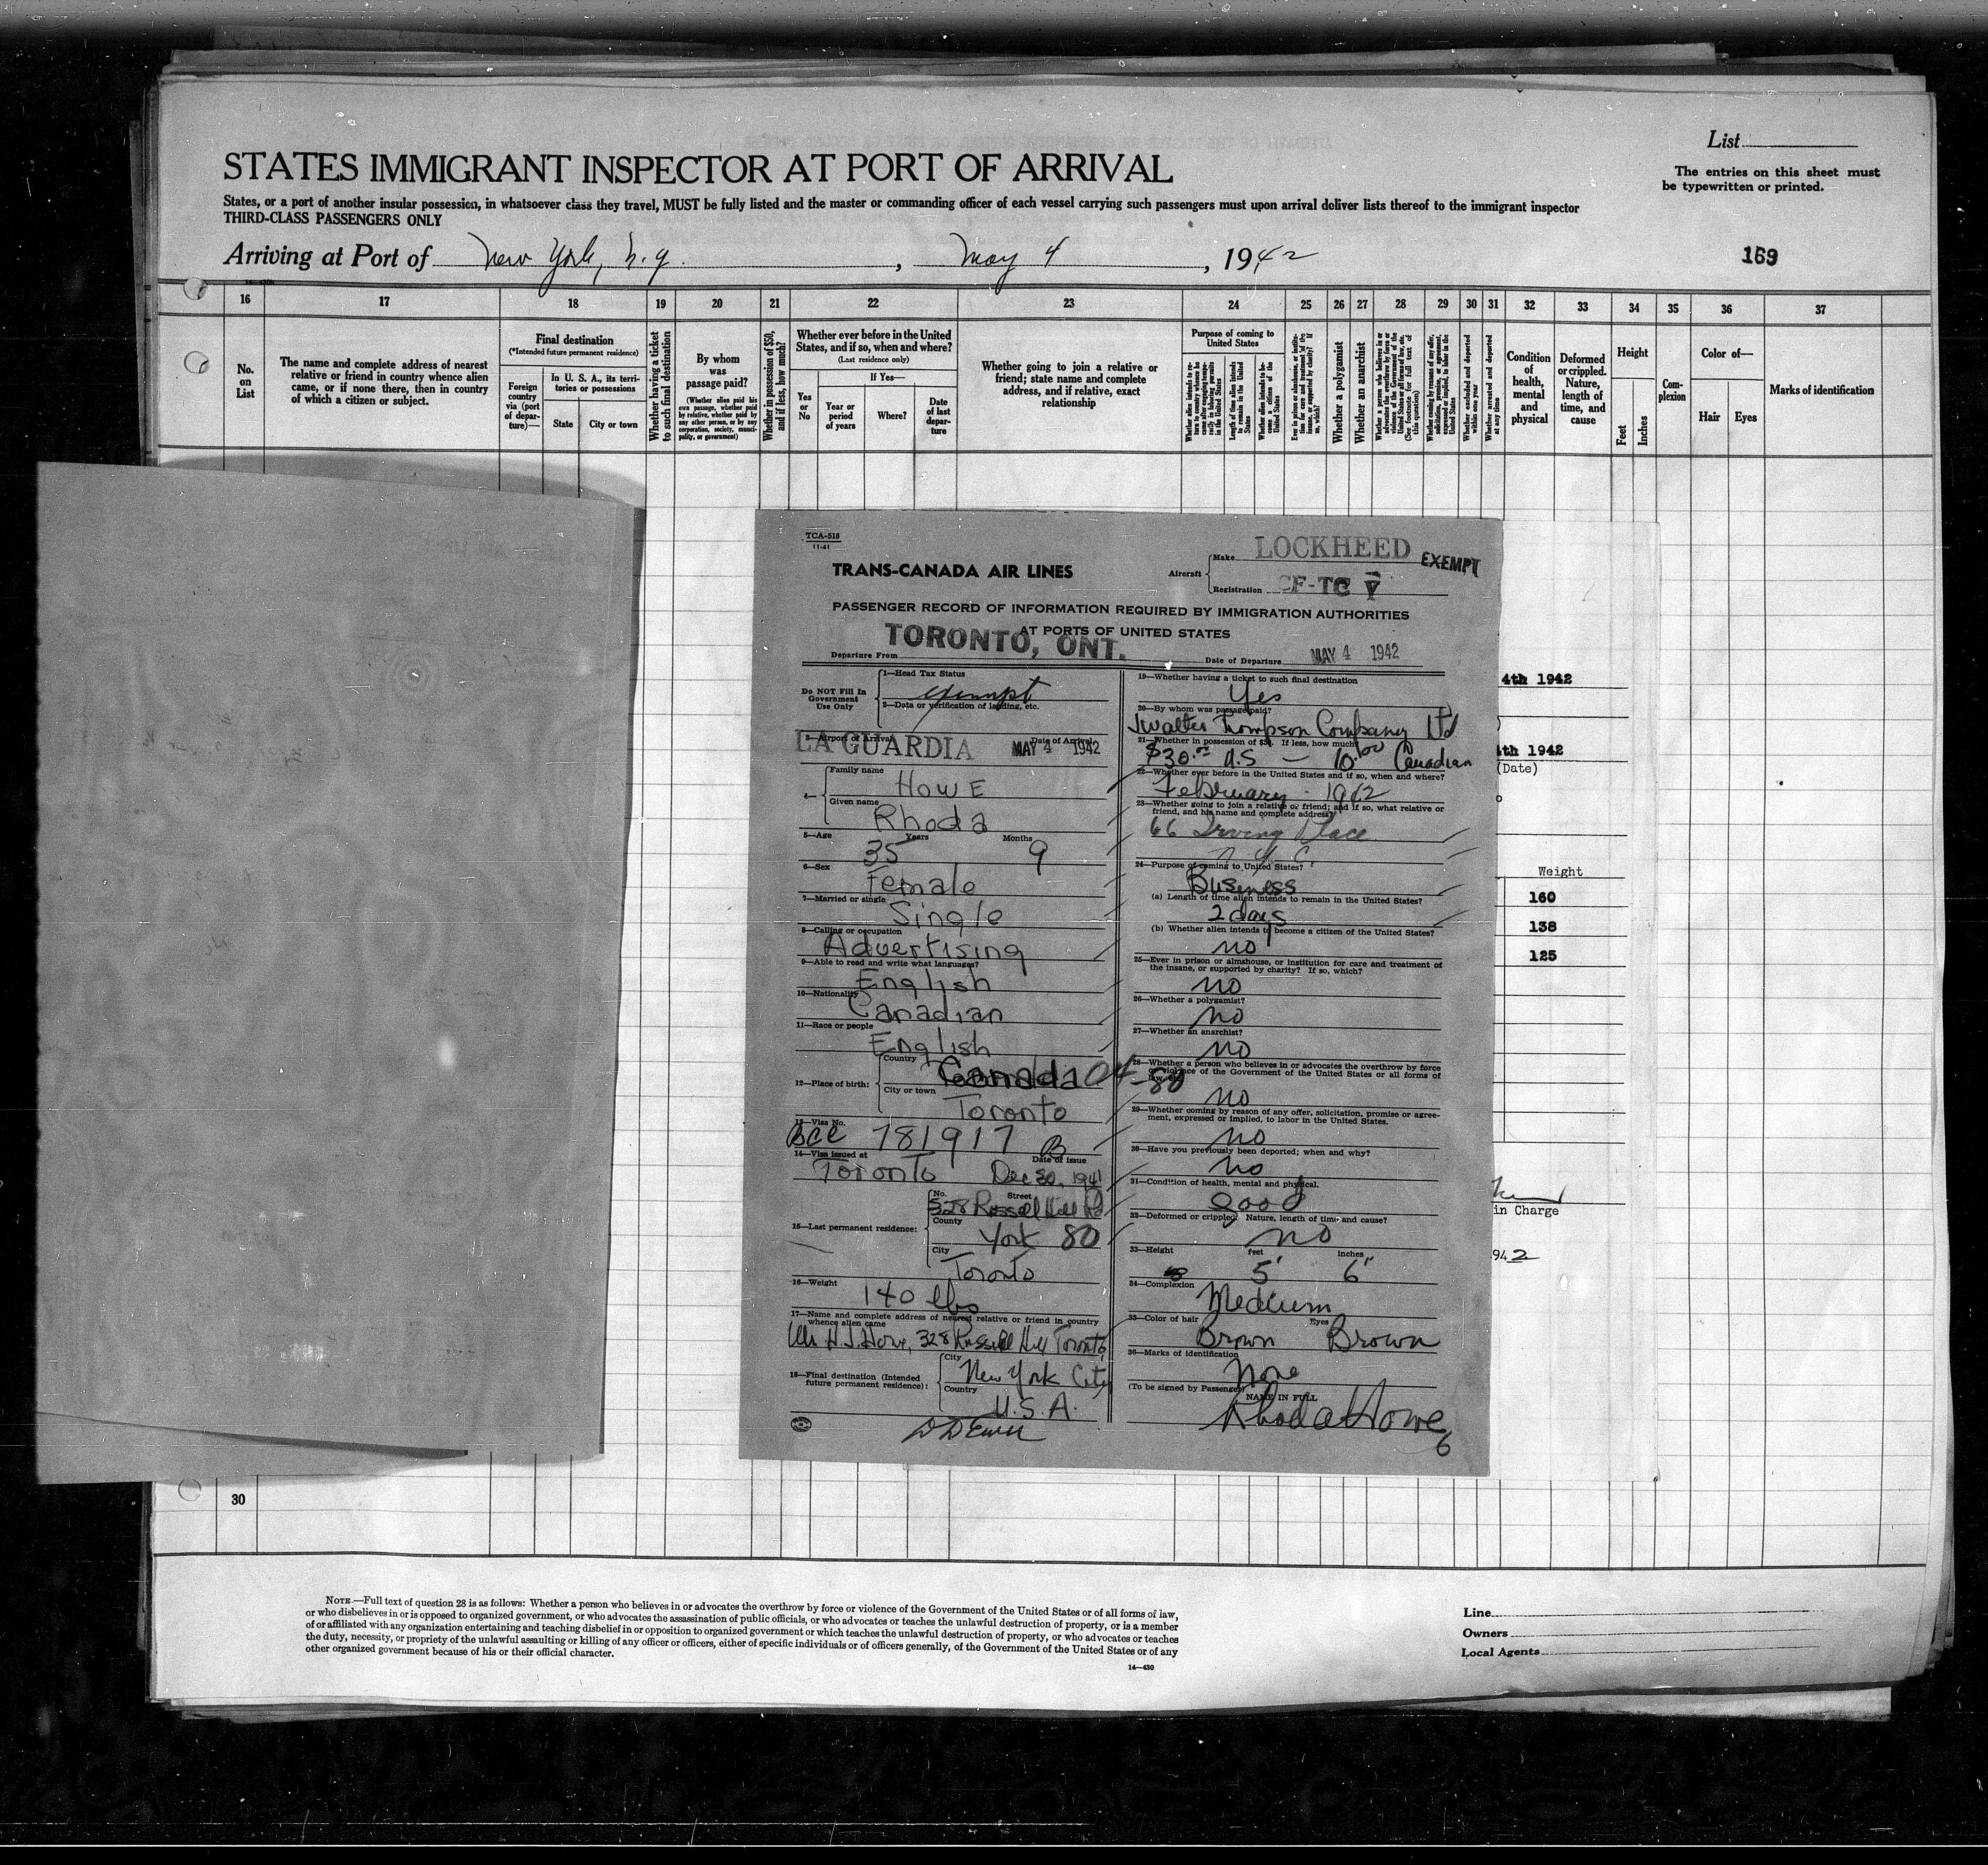 List
STATES IMMIGRANT INSPECTOR AT PORT OF ARRIVAL
The entries on this sheet must
be typewritten or printed.
States, or a port of another insular possession, in whatsoever class they travel, MUST be fully listed and the master or commanding officer of each vessel carrying such passengers must upon arrival deliver lists thereof to the immigrant inspector
THIRD-CLASS PASSENGERS ONLY
Arriving at Port of New York, N.Y. , May 4 , 1942
169
16 17 18 19 20 21 22 23 24 25 26 27 28 29 30 31 32 33 34 35 36 37
No. on List
The name and complete address of nearest relative or friend in country whence alien came, or if none there, then in country of which a citizen or subject.
Final destination
(*Intended future permanent residence)
Foreign country via (port of departure)—
In U. S. A., its territories or possessions
State
City or town
Whether having a ticket to such final destination
By whom was passage paid?
(Whether alien paid his own passage, whether paid by relative, whether paid by any other person, or by any corporation, society, municipality, or government)
Whether in possession of $50, and if less, how much?
Whether ever before in the United States, and if so, when and where?
(Last residence only)
Yes or No
If Yes—
Year or period of years
Where?
Date of last departure
Whether going to join a relative or friend; state name and complete address, and if relative, exact relationship
Purpose of coming to United States
Length of time alien intends to remain in the United States
Whether alien intends to become a citizen of the United States
Whether a polygamist
Whether an anarchist
Whether excluded and deported within one year
Whether arrested and deported at any time
Condition of health, mental and physical
Deformed or crippled. Nature, length of time, and cause
Height
Feet
Inches
Complexion
Color of—
Hair
Eyes
Marks of identification
TCA-518
11-41
TRANS-CANADA AIR LINES
Aircraft
Make LOCKHEED
EXEMPT
Registration CF-TC V
PASSENGER RECORD OF INFORMATION REQUIRED BY IMMIGRATION AUTHORITIES
AT PORTS OF UNITED STATES
Departure From TORONTO, ONT.
Date of Departure MAY 4 1942
Do NOT Fill In
Government
Use Only
1—Head Tax Status
exempt
2—Data or verification of landing, etc.
3—Airport of Arrival LA GUARDIA
Date of Arrival MAY 4 1942
4—
Family name
Howe
Given name
Rhoda
5—Age 35 Years 9 Months
6—Sex
Female
7—Married or single
Single
8—Calling or occupation
Advertising
9—Able to read and write what languages?
English
10—Nationality
Canadian
11—Race or people
English
12—Place of birth:
Country Canada 04-80
City or town
Toronto
13—Visa No.
BCC 781917 B
14—Visa issued at
Toronto
Date of issue
Dec 30, 1941
15—Last permanent residence:
No. Street
328 Russell Hill Rd
County
York 80
City
Toronto
16—Weight
140 lbs
17—Name and complete address of nearest relative or friend in country
whence alien came
H.J. Howe, 328 Russell Hill Toronto
18—Final destination (Intended
future permanent residence):
City
New York City
Country
U.S.A.
19—Whether having a ticket to such final destination
Yes
20—By whom was passage paid?
J Walter Thompson Company Ltd
21—Whether in possession of $50. If less, how much?
$30.00 U.S — 10.00 Canadian
22—Whether ever before in the United States and if so, when and where?
February - 1942
23—Whether going to join a relative or friend; and if so, what relative or
friend, and his name and complete address?
66 Irving Place
N.Y.C.
24—Purpose of coming to United States?
Business
(a) Length of time alien intends to remain in the United States?
2 days
(b) Whether alien intends to become a citizen of the United States?
no
25—Ever in prison or almshouse, or institution for care and treatment of
the insane, or supported by charity? If so, which?
no
26—Whether a polygamist?
no
27—Whether an anarchist?
no
28—Whether a person who believes in or advocates the overthrow by force
or violence of the Government of the United States or all forms of
law
no
29—Whether coming by reason of any offer, solicitation, promise or agree-
ment, expressed or implied, to labor in the United States.
no
30—Have you previously been deported; when and why?
no
31—Condition of health, mental and physical.
good
32—Deformed or crippled. Nature, length of time and cause?
no
33—Height feet inches
5' 6"
34—Complexion
Medium
35—Color of hair Eyes
Brown Brown
36—Marks of identification
None
(To be signed by Passenger)
NAME IN FULL
Rhoda Howe
6
4th 1942
4th 1942
(Date)
Weight
160
138
125
in Charge
942
30
NOTE.—Full text of question 28 is as follows: Whether a person who believes in or advocates the overthrow by force or violence of the Government of the United States or of all forms of law,
or who disbelieves in or is opposed to organized government, or who advocates the assassination of public officials, or who advocates or teaches the unlawful destruction of property, or is a member
of or affiliated with any organization entertaining and teaching disbelief in or opposition to organized government or which teaches the unlawful destruction of property, or who advocates or teaches
the duty, necessity, or propriety of the unlawful assaulting or killing of any officer or officers, either of specific individuals or of officers generally, of the Government of the United States or of any
other organized government because of his or their official character.
14—430
Line
Owners
Local Agents